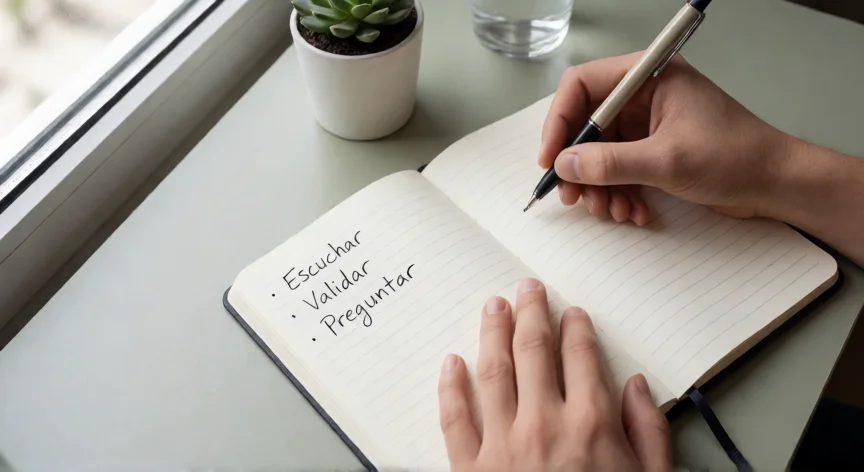 · Escuchar
· Validar
· Preguntar